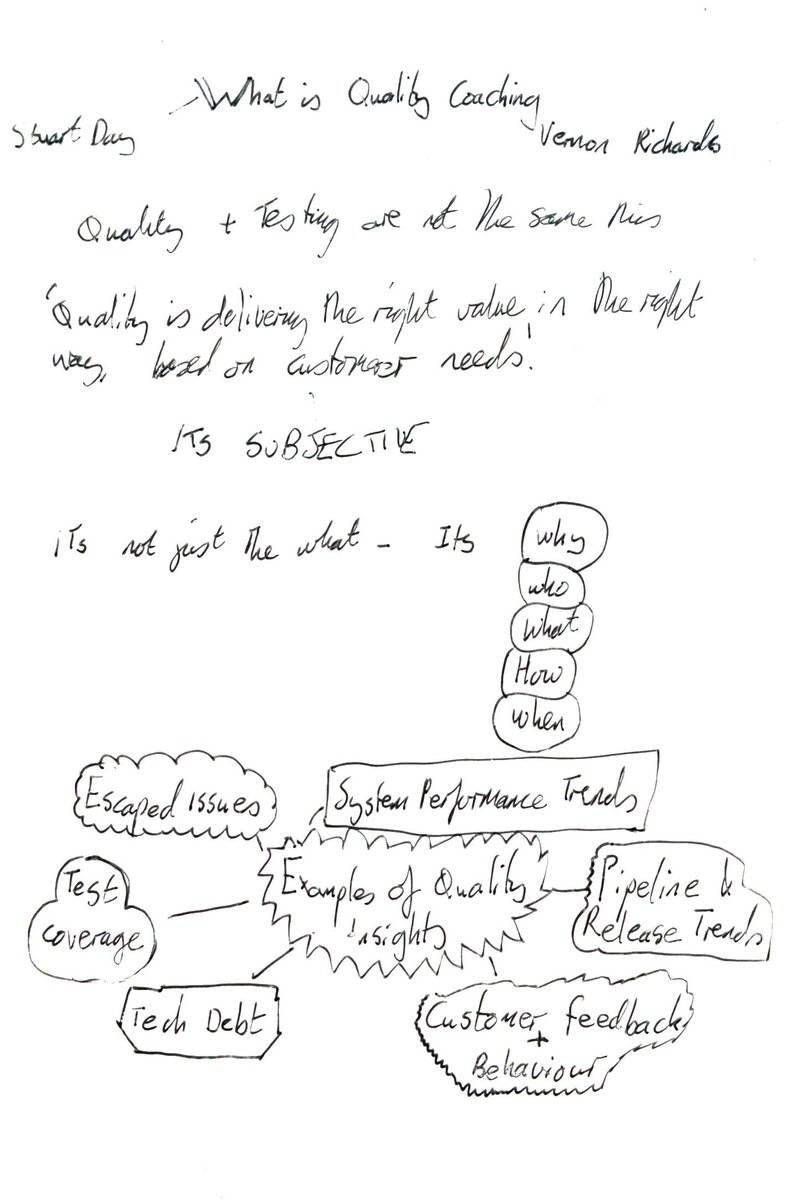 What is Quality Coaching
Stuart Day
Vernon Richards
Quality + Testing are not the same
'Quality is delivering the right value in the right
way, based on customer needs!'
ITS SUBJECTIVE
ITs not just the what - Its
why
who
What
How
when
Escaped Issues
System Performance Trends
Test
coverage
Examples of Quality
Insights
Pipeline &
Release Trends
Tech Debt
Customer feedback
+
Behaviour